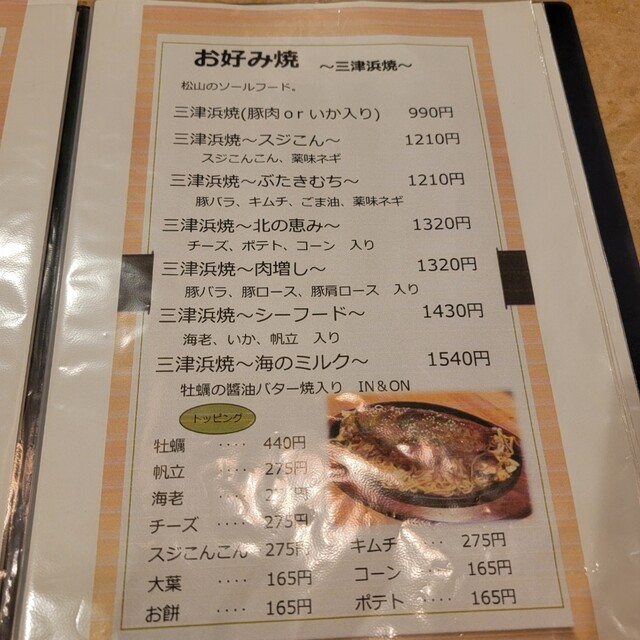 お好み焼 ～三津浜焼～
松山のソールフード。
三津浜焼(豚肉orいか入り) 990円
三津浜焼～スジこん～ 1210円
スジこんこん、薬味ネギ
三津浜焼～ぶたきむち～ 1210円
豚バラ、キムチ、ごま油、薬味ネギ
三津浜焼～北の恵み～ 1320円
チーズ、ポテト、コーン 入り
三津浜焼～肉増し～ 1320円
豚バラ、豚ロース、豚肩ロース 入り
三津浜焼～シーフード～ 1430円
海老、いか、帆立 入り
三津浜焼～海のミルク～ 1540円
牡蠣の醤油バター焼入り IN＆ON
トッピング
牡蠣 ‥‥ 440円
帆立 ‥‥ 275円
海老 ‥‥ 円
チーズ ‥‥ 275円
スジこんこん 275円 キムチ 275円
大葉 ‥‥ 165円 コーン ‥‥ 165円
お餅 ‥‥ 165円 ポテト ‥‥ 165円